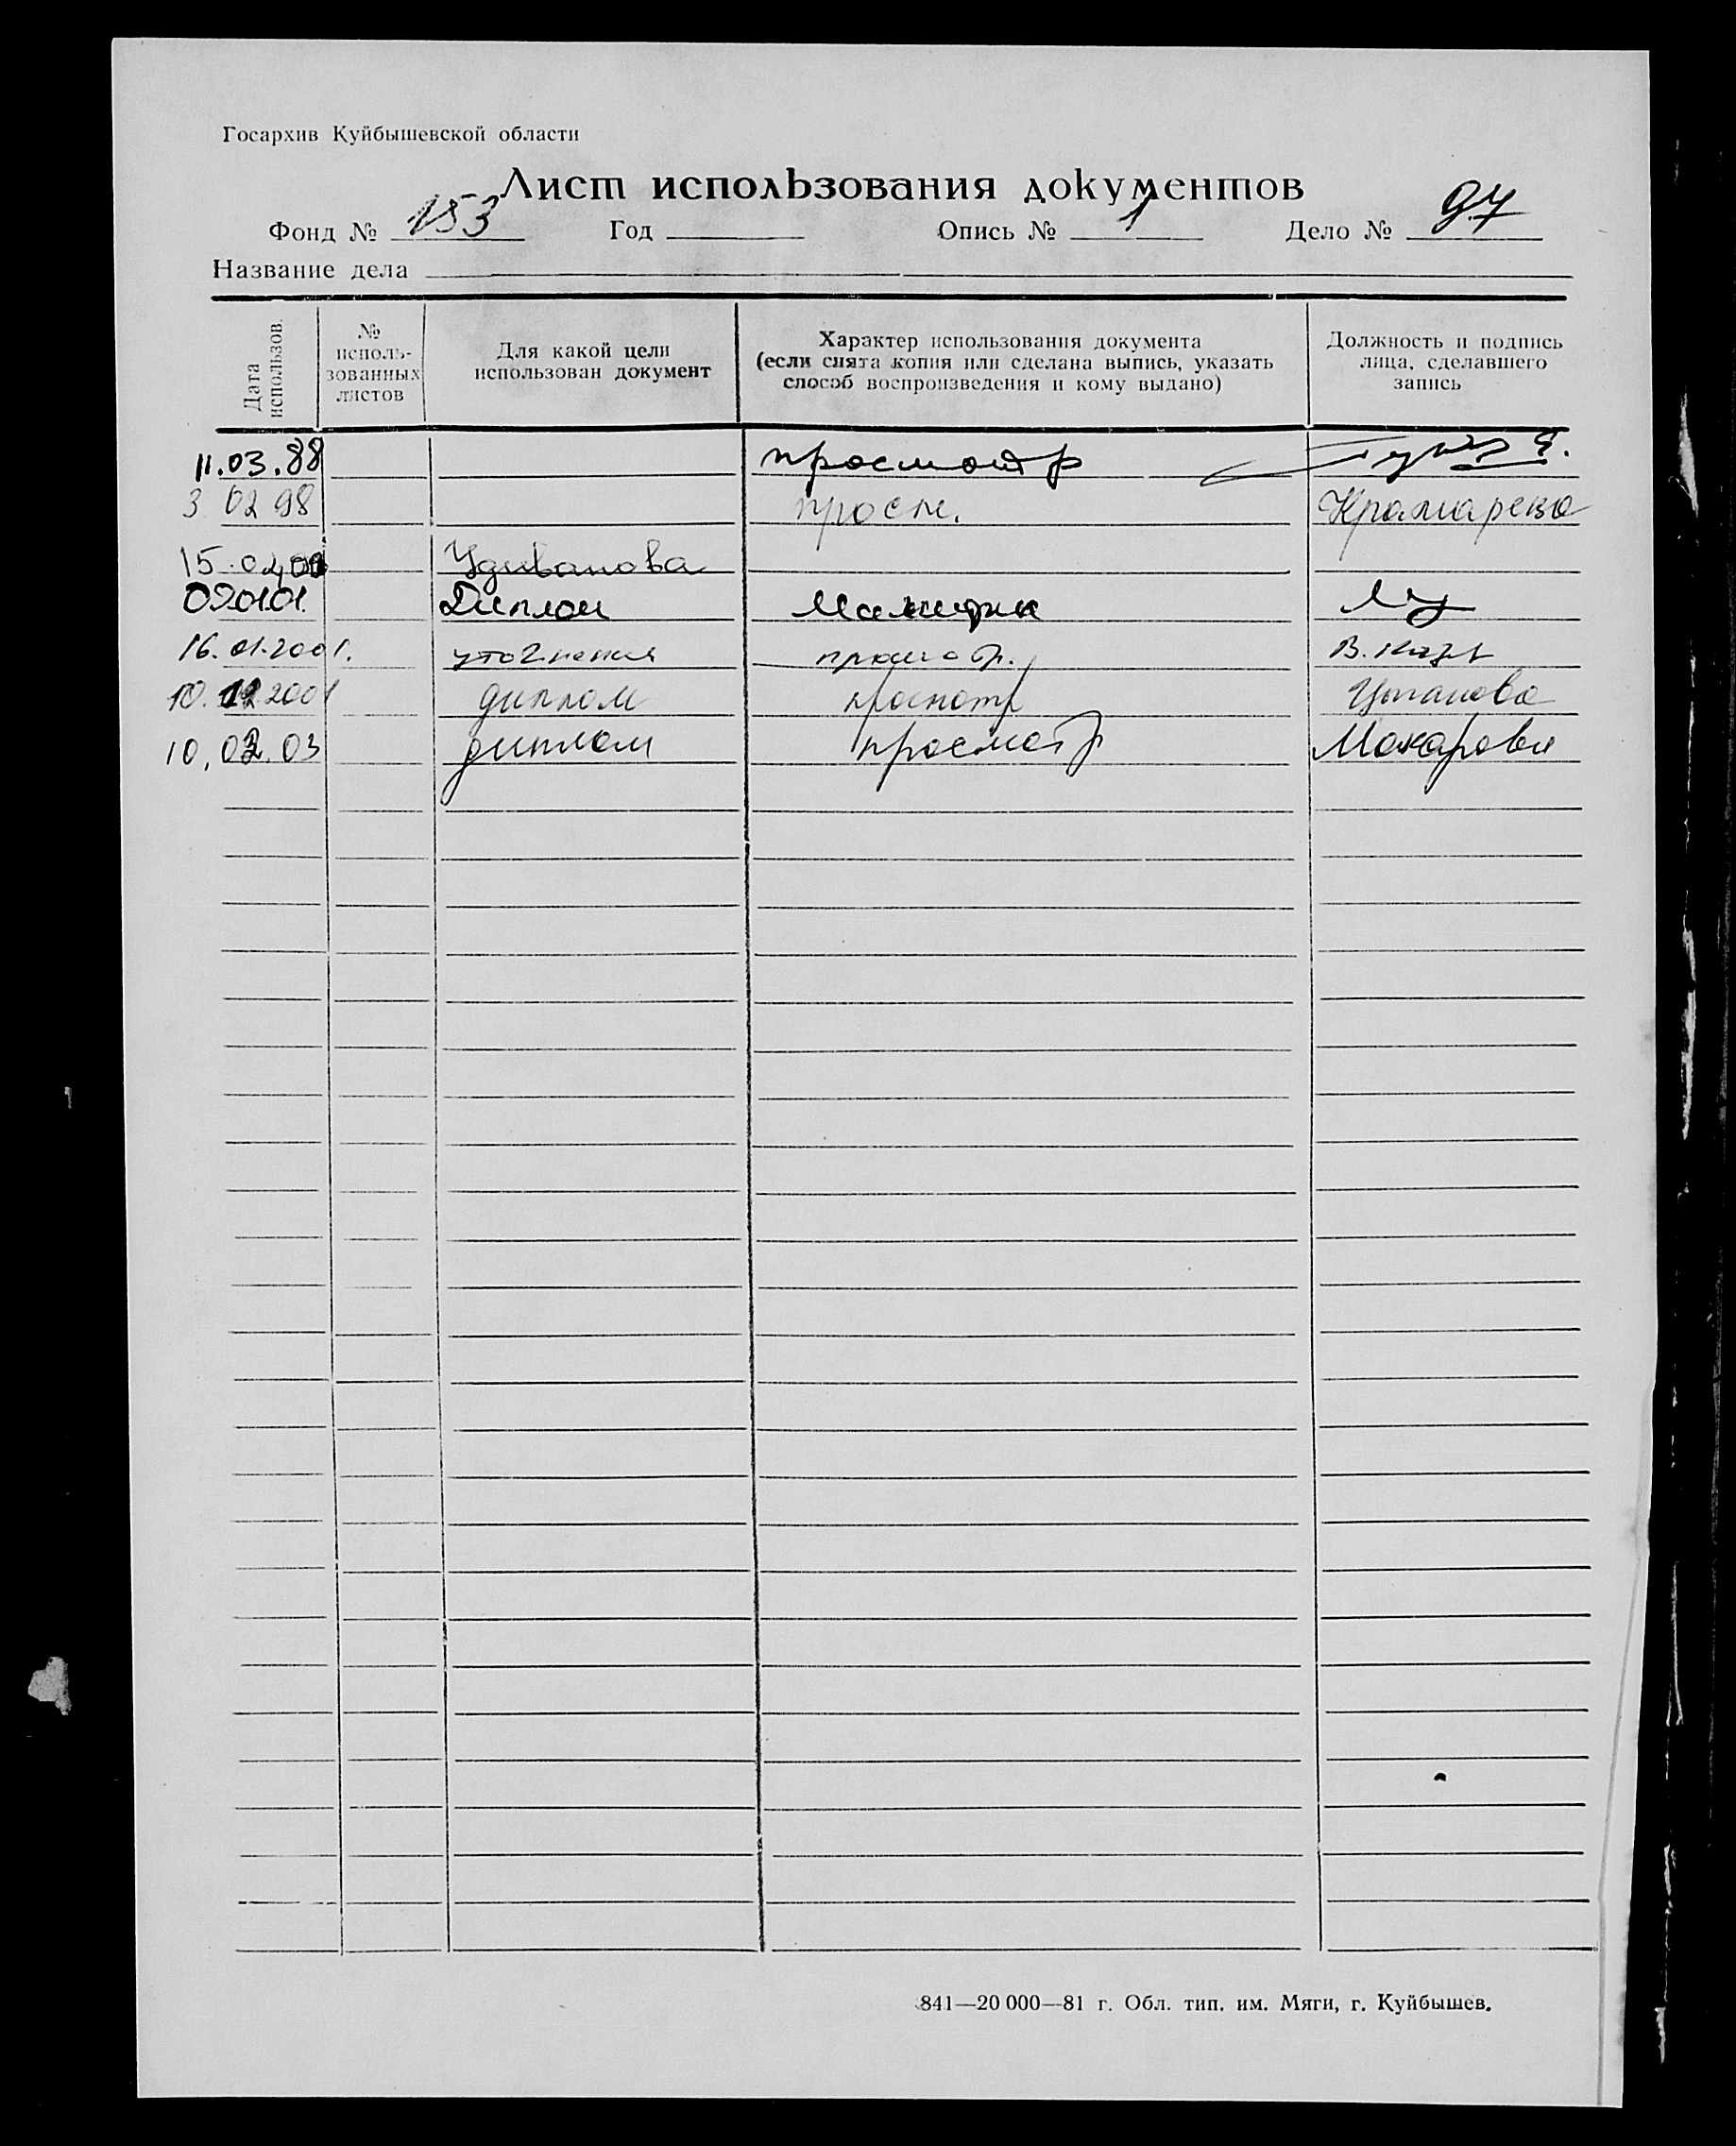 Госархив Куйбышевской области
Лист использования документов
Фонд № 153 Год Опись № 1 Дело № 97
Название дела
Дата использов.
№ исполь-зованных листов
Для какой цели использован документ
Характер использования документа
(если снята копия или сделана выпись, указать
способ воспроизведения и кому выдано)
Должность и подпись
лица, сделавшего
запись
11.03.88 просмотр
3 02 98 просм.
15.02.00
09.01.01. Диплом
16.01.2001. уточнения просмотр.
10.12 2001 диплом просмотр
10.02.03 диплом просмотр Макарова
841—20 000—81 г. Обл. тип. им. Мяги, г. Куйбышев.